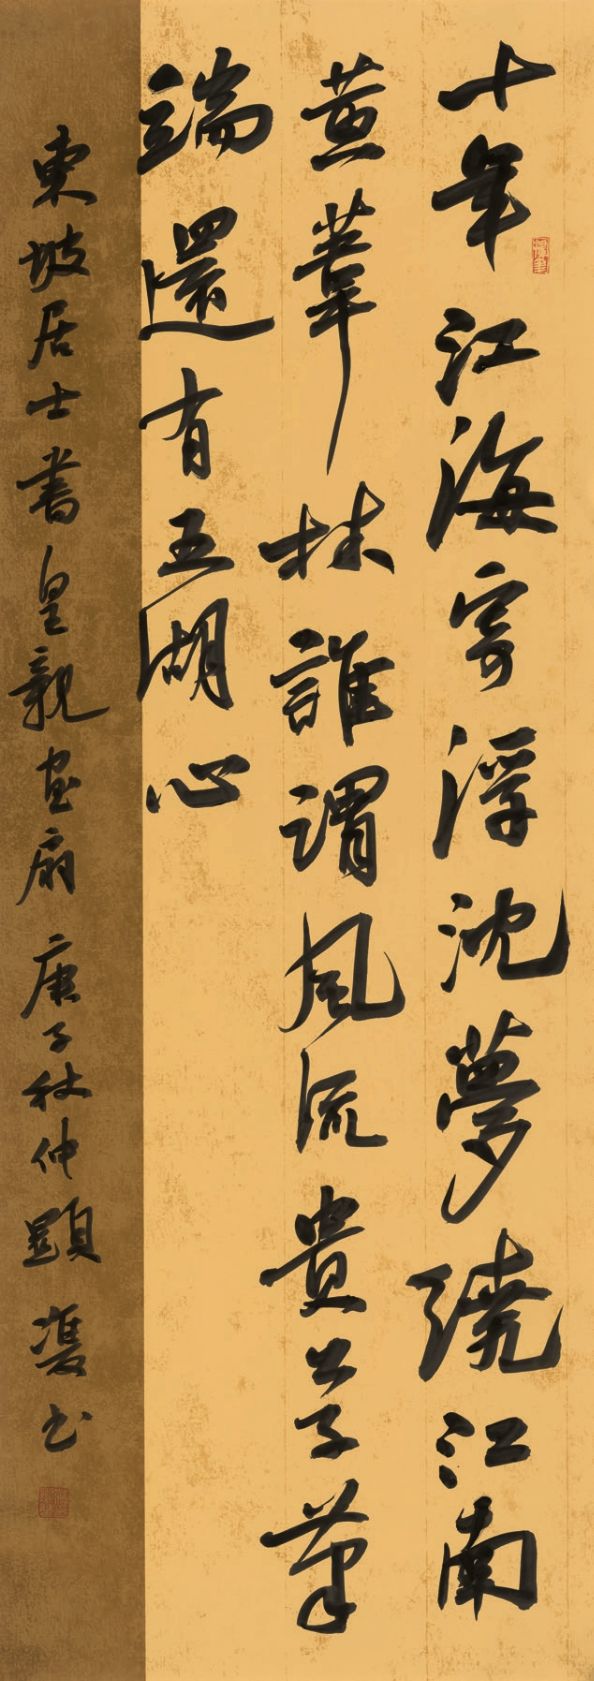 十年江海寄浮沈夢繞江南
黄葦林誰謂風流貴公子筆
端還有五湖心
東坡居士書皇親画扇庚子秋仲顕书